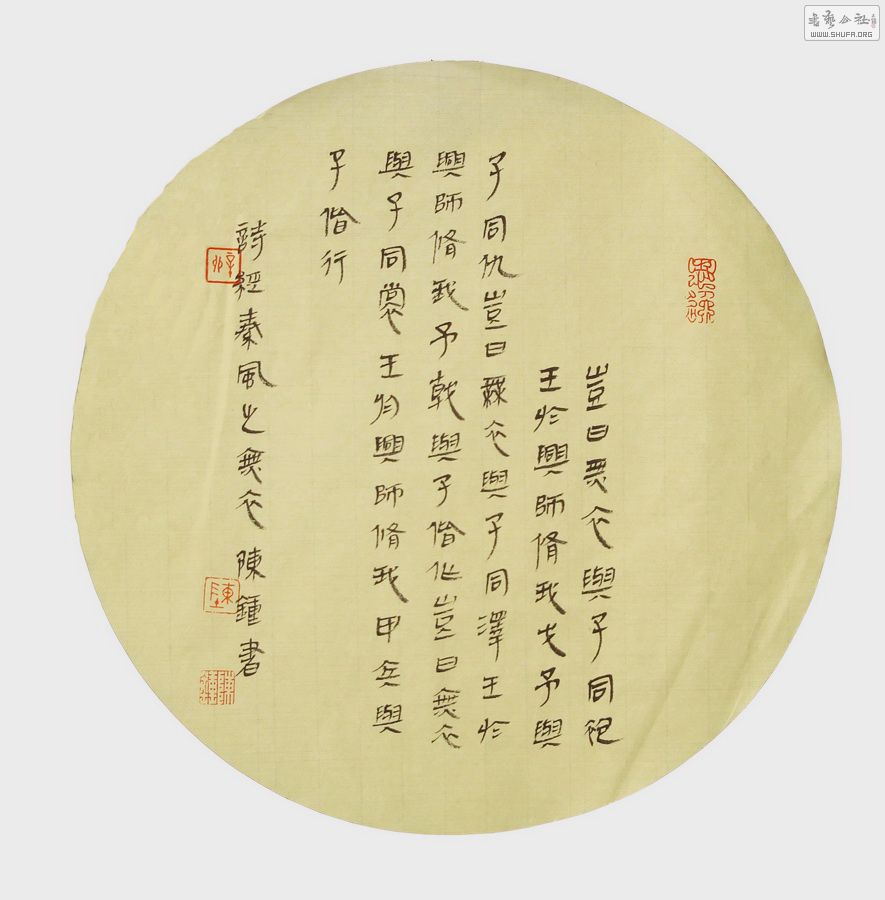 豈曰無衣與子同袍
王於興師脩我戈矛與
子同仇豈曰無衣與子同澤王於
興師脩我矛戟與子偕作豈曰無衣
與子同裳王於興師脩我甲兵與
子偕行
詩經秦風之無衣 陳鍾書
書藝公社
WWW.SHUFA.ORG